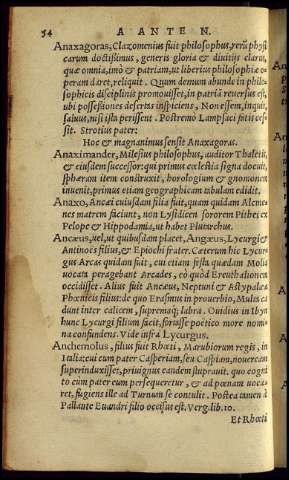 54 A ANTE N.
Anaxagoras, Clazomenius fuit philosophus, verū physi
carum doctissimus, generis gloria & diuitijs clarus,
quæ omnia, imò & patriam, ut liberius philosophiæ o-
peram daret, reliquit. Quum demum abunde in philo-
sophicis disciplinis promouisset, in patriā reuersus est,
ubi possessiones desertas inspiciens, Non essem, inquit,
saluus, nisi istæ perissent. Postremò Lampsaci fatis ces-
sit. Strotius pater:
Hoc & magnanimus sensit Anaxagoras.
Anaximander, Milesius philosophus, auditor Thaletis,
& eiusdem successor: qui primus ex lectis signa docuit,
sphæram item construxit, horologium & gnomonem
inuenit, primus etiam geographicam tabulam edidit.
Anaxo, Ancæi cuiusdam filia fuit, quam quidam Alcme-
nes matrem faciunt, non Lysidicen sororem Pitthei ex
Pelope & Hippodamia, ut habet Plutarchus.
Ancæus, uel, ut quibusdam placet, Angæus, Lycurgi &
Antinoës filius, & Epochi frater. Cæterum hic Lycur-
gus Arcas quidam fuit, cui etiam festa quædam Molæ
uocata peragebant Arcades, eò quod Ereuthalionem
occidisset. Alius fuit Ancæus, Neptuni & Astypalææ
Phœnicis filius: de quo Erasmus in prouerbio, Multa ca
dunt inter calicem, supremaq; labra. Ouidius in Ibyn
hunc Lycurgi filium facit, fortasse poëtico more nomi
na confundens. Vide infrà Lycurgus.
Anchemolus, filius fuit Rhœti, Marubiorum regis, in
Italia: cui cum pater Casperiam, seu Caspiam, nouercam
superinduxisset, priuignus eandem stuprauit. quo cogni
to cum pater eum persequeretur, & ad pœnam uoca-
ret, fugiens ille ad Turnum se contulit. Postea tamen à
Pallante Euandri filio occisus est. Verg. lib. 10.
Et Rhœti